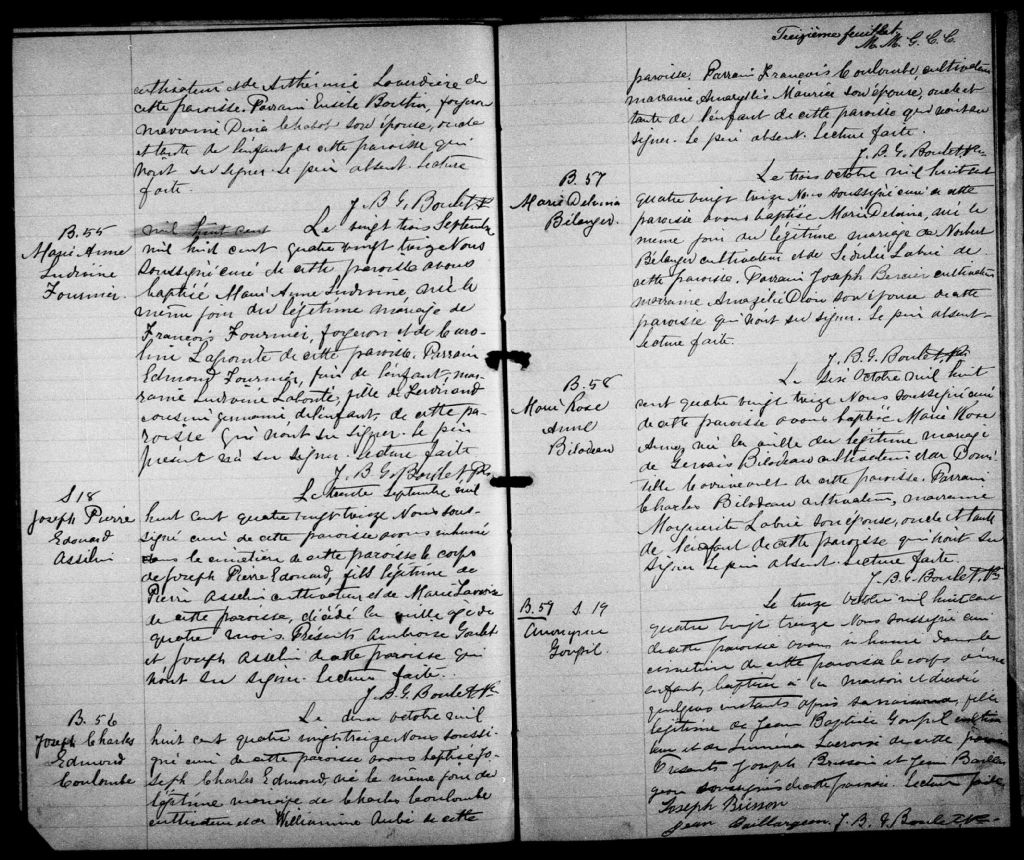 cultivateur et de Arthémise Laverdière de
cette paroisse. Parrain Eusèbe Boutin, forgeron
marraine Dina Chabot son épouse, oncle
et tante de l'enfant de cette paroisse qui
n'ont su signer. Le père absent. Lecture
faite.
J. B. G. Boulet Ptre
B. 55
Marie Anne
Ludivine
Fournier.
mil huit cent Le vingt trois Septembre
mil huit cent quatre vingt treize Nous
soussigné curé de cette paroisse avons
baptisé Marie Anne Ludivine, née le
même jour du légitime mariage de
François Fournier, forgeron et de Caro-
line Lapointe de cette paroisse. Parrain
Edmond Fournier, frère de l'enfant, mar-
raine Ludivine Labonté, fille de Ferdinand
cousine germaine de l'enfant, de cette pa-
roisse qui n'ont su signer. Le père
présent n'a su signer. Lecture faite
J. B. G. Boulet Ptre
S 18
Joseph Pierre
Edouard
Asselin
Le trente Septembre mil
huit cent quatre vingt treize Nous sous-
signé curé de cette paroisse avons inhumé
dans le cimetière de cette paroisse le corps
de Joseph Pierre Edouard, fils légitime de
Pierre Asselin cultivateur et de Marie
de cette paroisse, décédé la veille agé de
quatre mois. Présents Ambroise Goulet
et Joseph Asselin de cette paroisse qui
n'ont su signer. Lecture faite.
J. B. G. Boulet Ptre
B. 56
Joseph Charles
Edmond
Coulombe
Le deux octobre mil
huit cent quatre vingt treize Nous soussi-
gné curé de cette paroisse avons baptisé Jo-
seph Charles Edmond, né le même jour du
légitime mariage de Charles Coulombe
cultivateur et de Williamine Aubé de cette
Treizième feuillet
M. M. G. C. C.
paroisse. Parrain François Coulombe, cultivateur
marraine Amaryllis Maurice son épouse, oncle et
tante de l'enfant de cette paroisse qui n'ont su
signer. Le père absent. Lecture faite.
J. B. G. Boulet Ptre
B. 57
Marie Delvina
Bélanger.
Le trois octobre mil huit cent
quatre vingt treize Nous soussigné curé de cette
paroisse avons baptisé Marie Delvina, née le
même jour du légitime mariage de Norbert
Bélanger cultivateur et de Sédulie Labrie de
cette paroisse. Parrain Joseph Bernier cultivateur
marraine Amazélie Dion son épouse de cette
paroisse qui n'ont su signer. Le père absent.
Lecture faite.
J. B. G. Boulet Ptre
B. 58
Marie Rose
Anna
Bilodeau
Le Octobre mil huit
cent quatre vingt treize Nous soussigné curé
de cette paroisse avons baptisé Marie Rose
Anna, née la veille du légitime mariage
de Gervais Bilodeau cultivateur et de Domi-
tille de cette paroisse. Parrain
Charles Bilodeau cultivateur, marraine
Marguerite Labrie son épouse, oncle et tante
de l'enfant de cette paroisse qui n'ont su
signer. Le père absent. Lecture faite.
J. B. G. Boulet Ptre
B. 59 S. 19
Anonyme
Goupil.
Le treize Octobre mil huit cent
quatre vingt treize Nous soussigné curé
de cette paroisse avons inhumé dans le
cimetière de cette paroisse le corps d'une
enfant, baptisée à la maison et décédée
quelques instants après sa naissance, fille
légitime de Jean Baptiste Goupil cultiva
teur et de Luména Lacroix de cette paroisse
Présents Joseph Brisson et Jean Baillar
geon soussignés de cette paroisse. Lecture faite
Joseph Brisson
Jean Baillargeon. J. B. G. Boulet Ptre